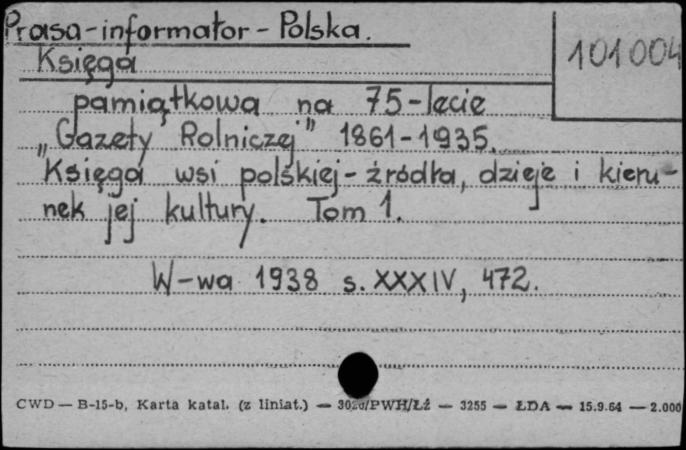 Prasa-informator - Polska.
101004
Księga
pamiątkowa na 75-lecie
„Gazety Rolniczej" 1861-1935.
Księga wsi polskiej - źródła, dzieje i kieru-
nek jej kultury. Tom 1.
W-wa 1938 s. XXXIV, 472.
CWD — B-15-b, Karta katal. (z liniat.) — /PWH/Łź — 3255 — ŁDA — 15.9.64 — 2.000